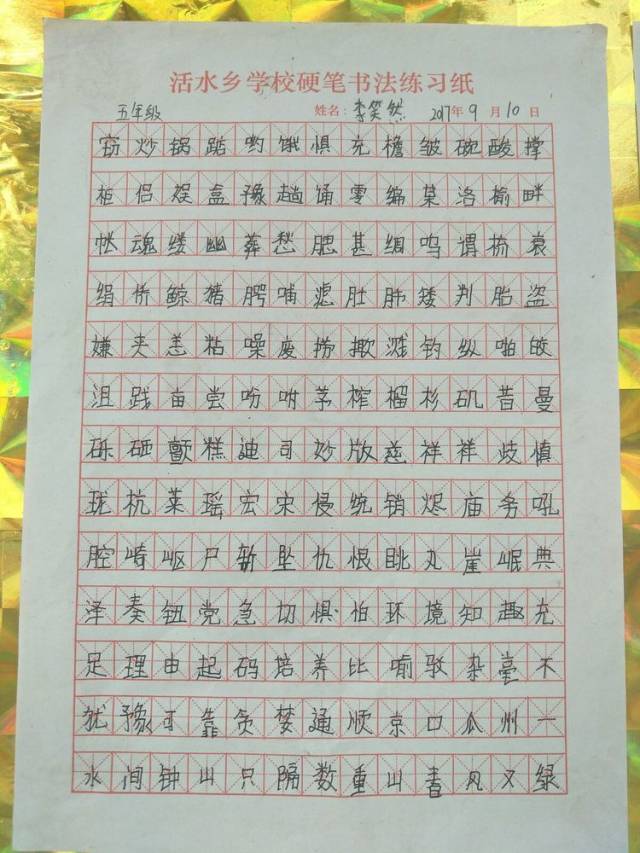 活水乡学校硬笔书法练习纸
五年级 姓名：李笑然 2017年9月10日
窃炒锅踮哟饿惧充檐皱碗酸撑
柜侣娱盒豫趟诵零编某洛榆畔
怅魂缕幽葬愁腮甚绸呜谓梳哀
绢侨鲸猪腭哺滤肚肺矮判胎盗
嫌夹恙粘噪废捞揪溅钓纵啪皎
沮践亩尝吩咐茅榨榴杉矶昔曼
砾砸颤糕迪司妙版慈祥祥歧慎
珑杭莱瑶宏宋侵统销烬庙务吼
腔崎岖尸斩坠仇恨眺丸崖岷典
泽奏钮党急切惧怕环境知趣充
足理由起码培养比喻驳杂毫不
犹豫可靠贪婪通顺京口瓜州一
水间钟山只隔数重山春风又绿